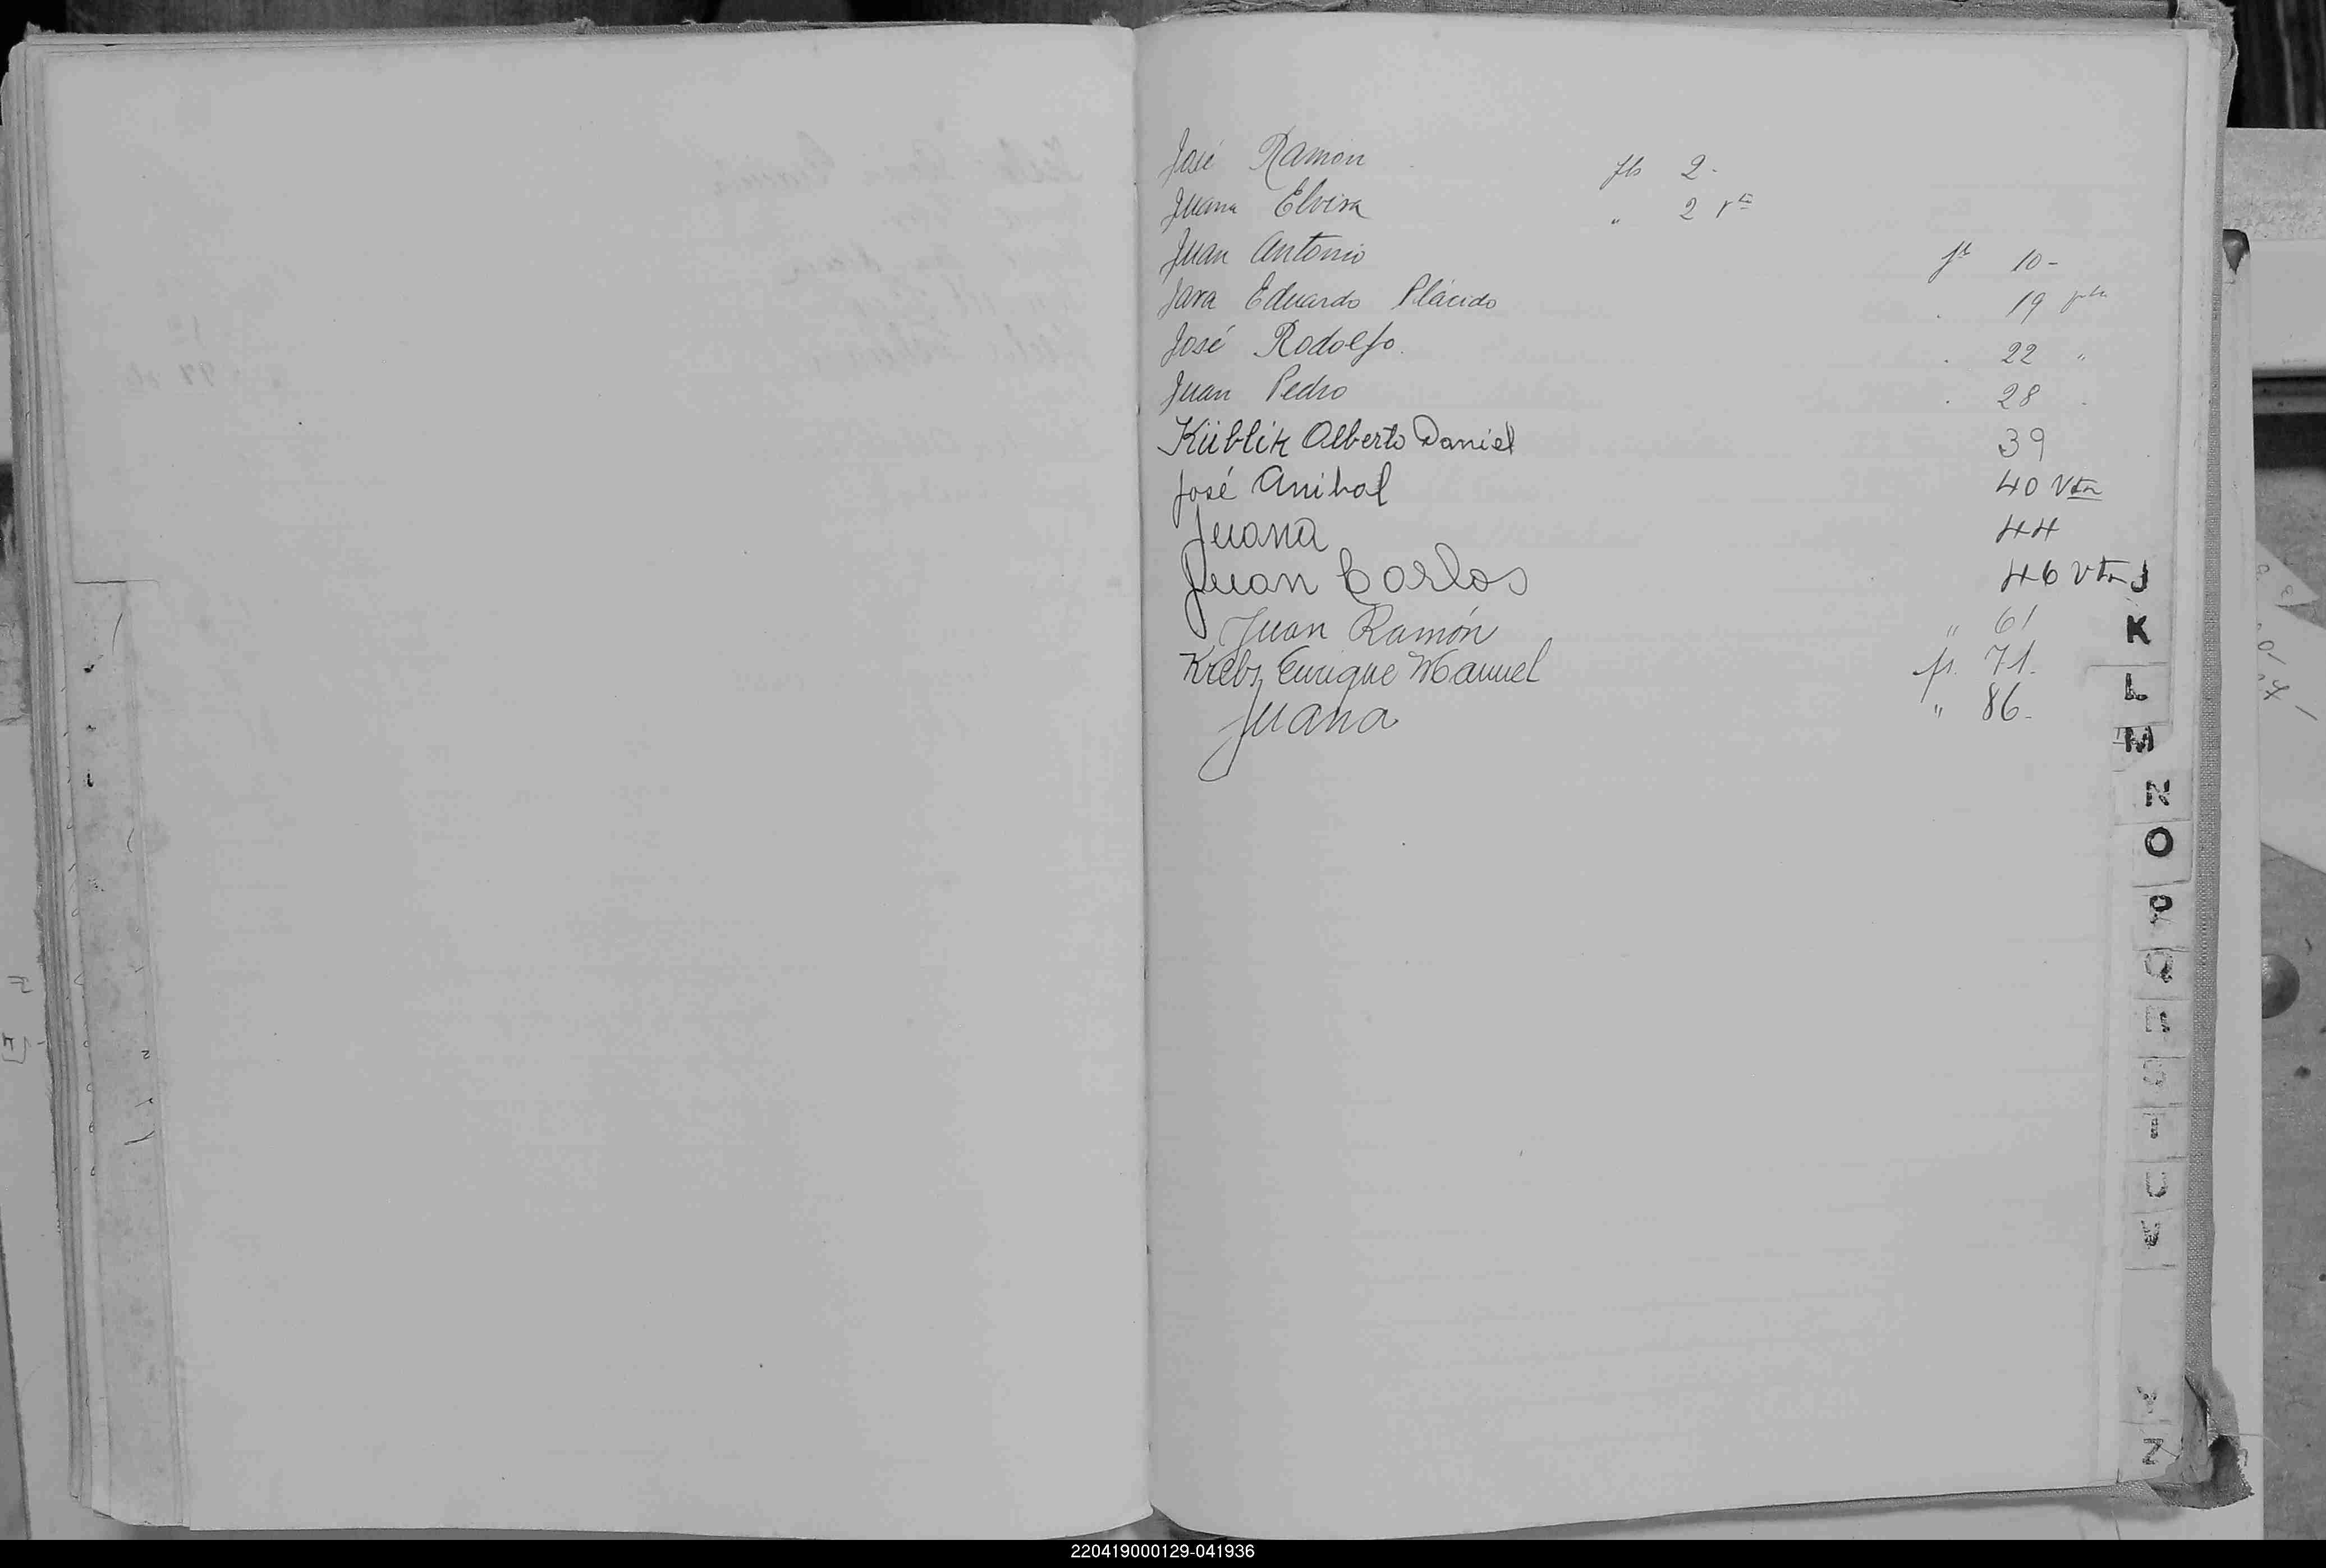 José Ramon fls 2-
Juana Elvira " 2 vta
Juan Antonio fs 10-
Jara Eduardo Plácido . 19 vta
José Rodolfo . 22 "
Juan Pedro . 28 .
Küblik Alberto Daniel 39
José Anibal 40 Vta
Juana 44
Juan Carlos 46 vta
Juan Ramón " 61
Krebs Enrique Manuel fs. 71.
Juana " 86-
J
K
L
M
N
O
P
Q
U
Z
220419000129-041936